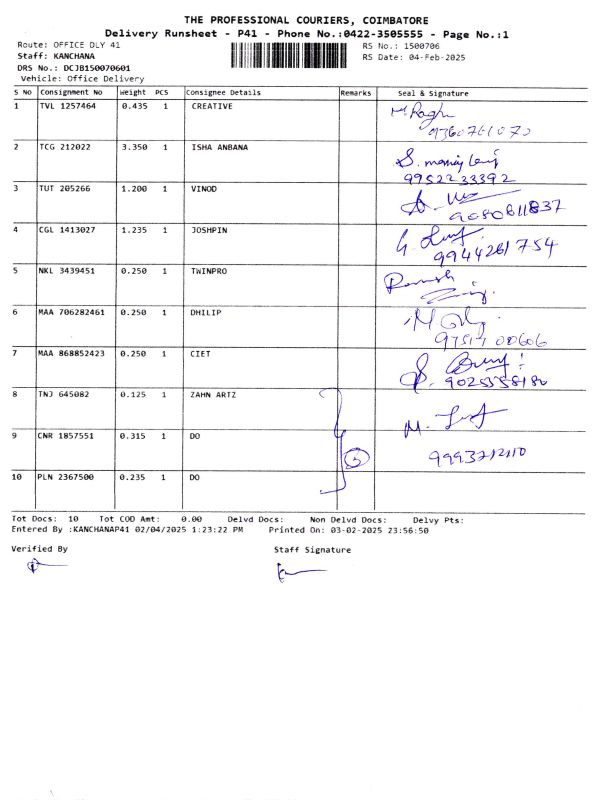 THE PROFESSIONAL COURIERS, COIMBATORE
Delivery Runsheet - P41 - Phone No.:0422-3505555 - Page No.:1
Route: OFFICE DLY 41 RS No.: 1500706
Staff: KANCHANA RS Date: 04-Feb-2025
DRS No.: DCJB150070601
Vehicle: Office Delivery
S No Consignment No Weight PCS Consignee Details Remarks Seal & Signature
1 TVL 1257464 0.435 1 CREATIVE
9360761070
2 TCG 212022 3.350 1 ISHA ANBANA
9952233392
3 TUT 205266 1.200 1 VINOD
9080611837
4 CGL 1413027 1.235 1 JOSHPIN
9944261754
5 NKL 3439451 0.250 1 TWINPRO
Ramesh
6 MAA 706282461 0.250 1 DHILIP
7 MAA 868852423 0.250 1 CIET
9025558180
8 TNJ 645082 0.125 1 ZAHN ARTZ
9 CNR 1857551 0.315 1 DO
10 PLN 2367500 0.235 1 DO
Tot Docs: 10 Tot COD Amt: 0.00 Delvd Docs: Non Delvd Docs: Delvy Pts:
Entered By :KANCHANAP41 02/04/2025 1:23:22 PM Printed On: 03-02-2025 23:56:50
Verified By Staff Signature